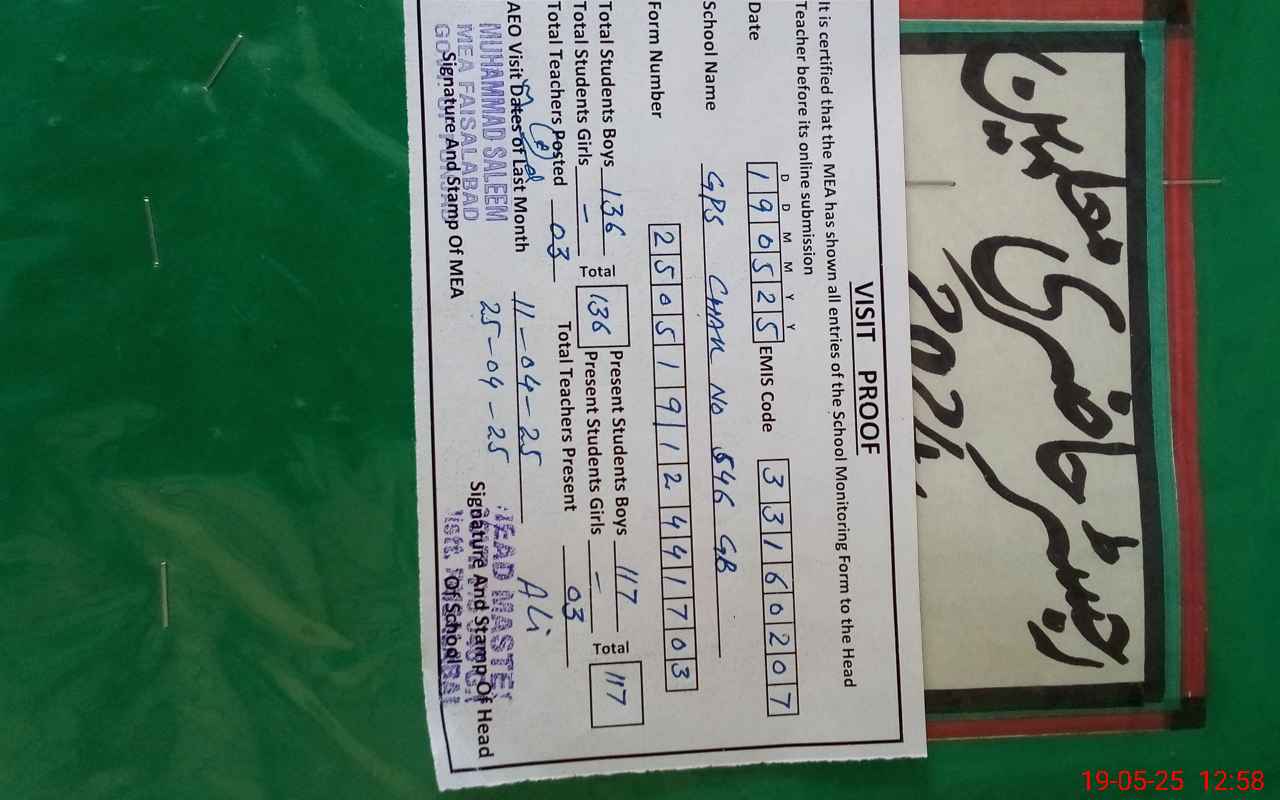 VISIT PROOF
It is certified that the MEA has shown all entries of the School Monitoring Form to the Head
Teacher before its online submission
D D M M Y Y
Date 190525 EMIS Code 33160207
School Name GPS CHAK No 546 GB
Form Number 25051912441703
Total Students Boys 136 Total 136 Present Students Boys 117 Total 117
Total Students Girls - Present Students Girls -
Total Teachers Posted 03 Total Teachers Present 03
AEO Visit Dates of Last Month 11-04-25 Ali
25-04-25
MUHAMMAD SALEEM
MEA FAISALABAD
HEAD MASTER
Signature And Stamp Of MEA
Signature And Stamp Of Head
Of School
رجسٹر حاضری معلمین
2024
19-05-25 12:58